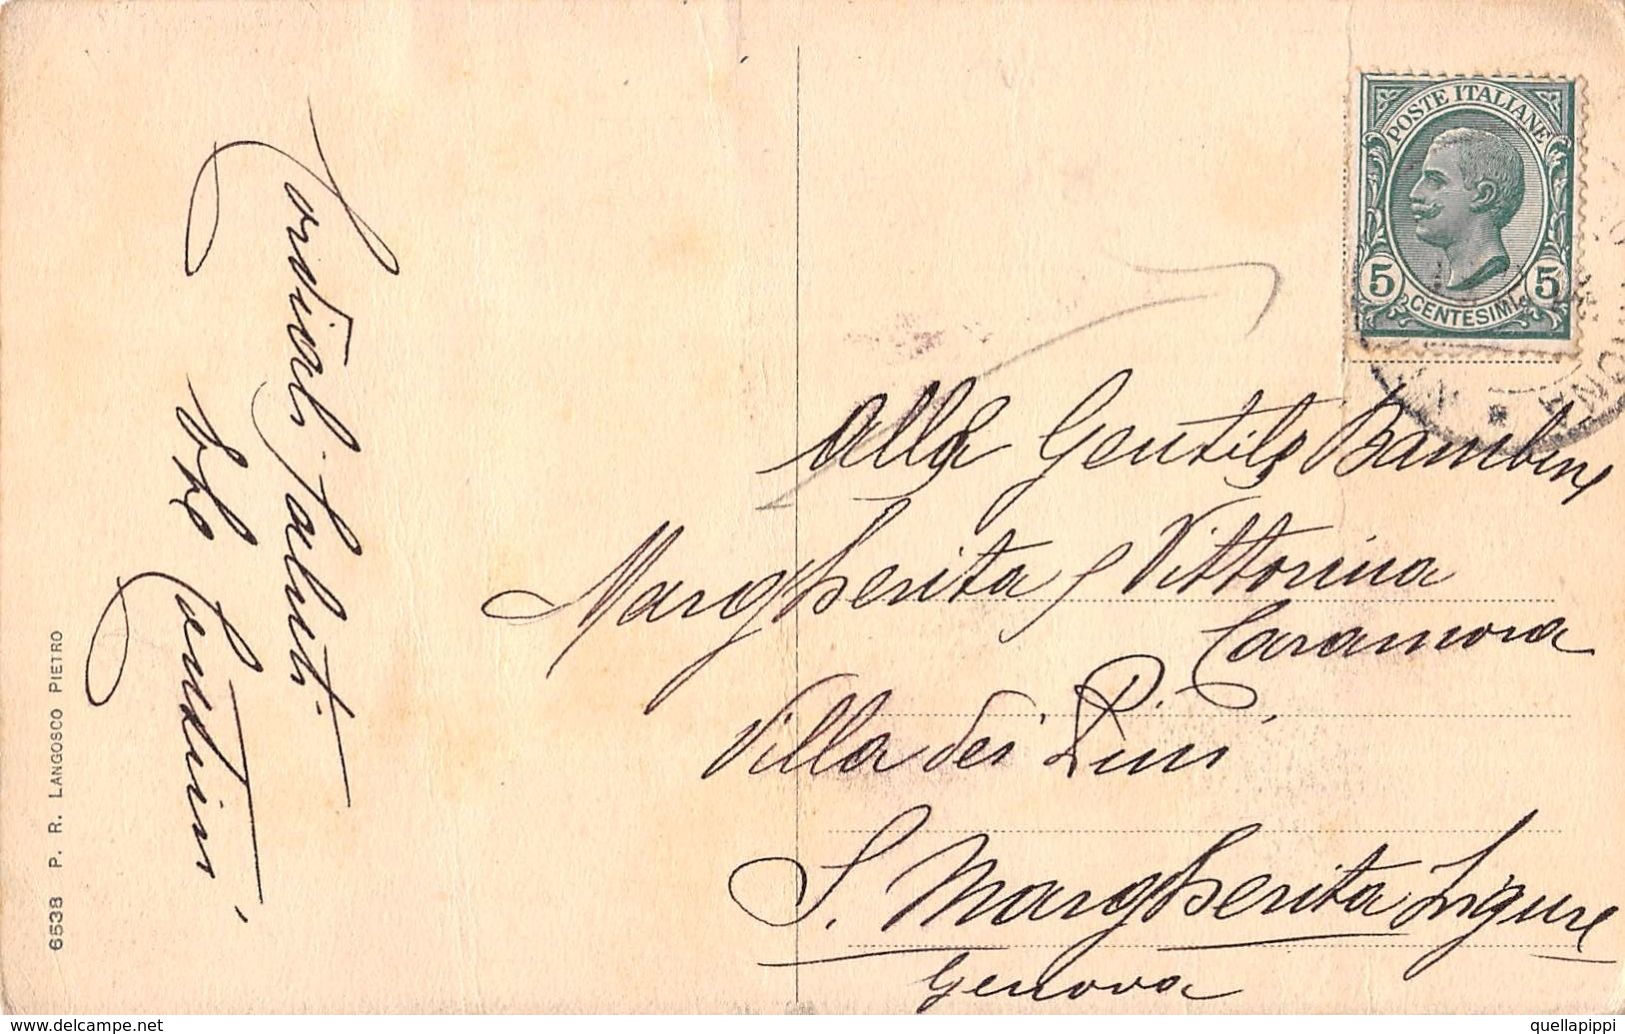 Cordiali saluti
Contini
6538 P. R. LANGOSCO PIETRO
POSTE ITALIANE
5 CENTESIMI 5
Alla Gentile Bambine
Margherita e Vittorina
Caramora
Villa dei Pini
S. Margherita Ligure
Genova
delcampe.net
quellapippi